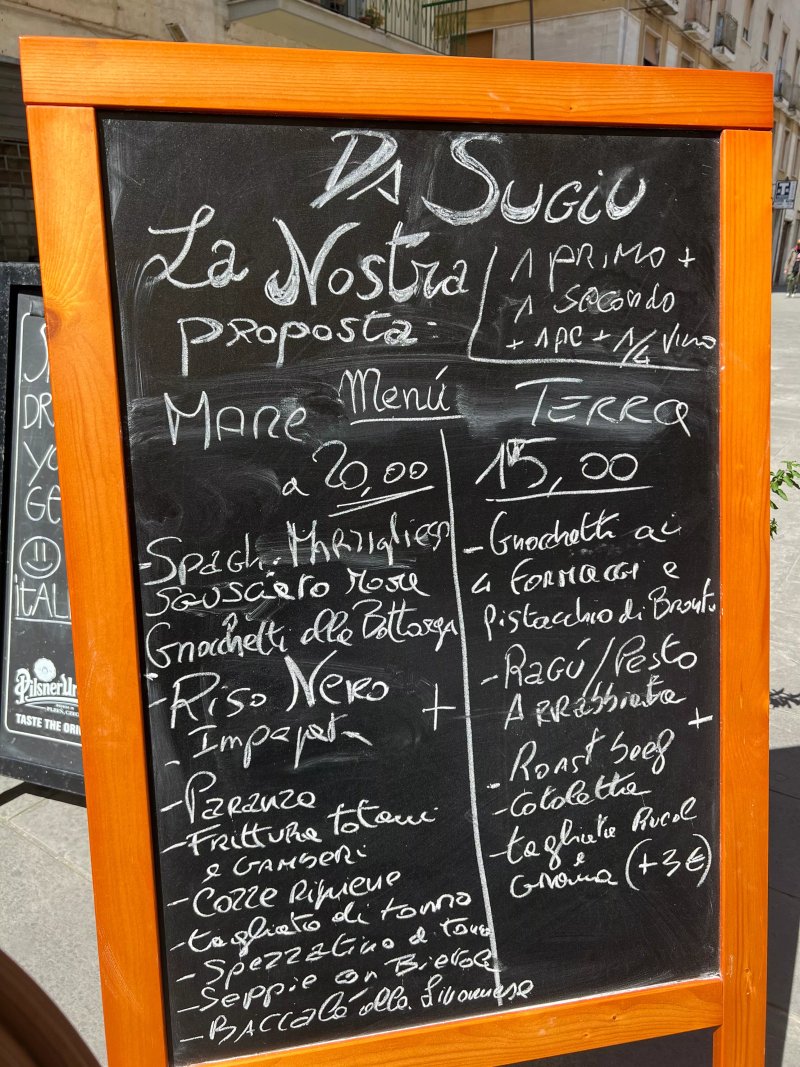 Da Sugiu
La Nostra
proposta:
1 primo +
1 secondo
+ 1 AC + 1/4 Vino
Mare Menú Terra
a 20,00
15,00
- Spagh.
sgusciato
Gnocchetti alla Bottarga
- Riso Nero
- Impepat
+
- Paranza
- Frittura totani
e Gamberi
- Cozze Ripiene
- tagliata di tonno
- Spezzatino di tonno
- Seppie con Bietole
- Baccalá alla Livornese
- Gnocchetti ai
4 Formaggi e
pistacchio di Bronte
- Ragú/Pesto
Arrabbiata
+
- Roast beef
- Cotoletta
- tagliata Rucol
e
Grana (+3€)
DR
YO
GE
iTAL
Pilsner Ur
TASTE THE ORI